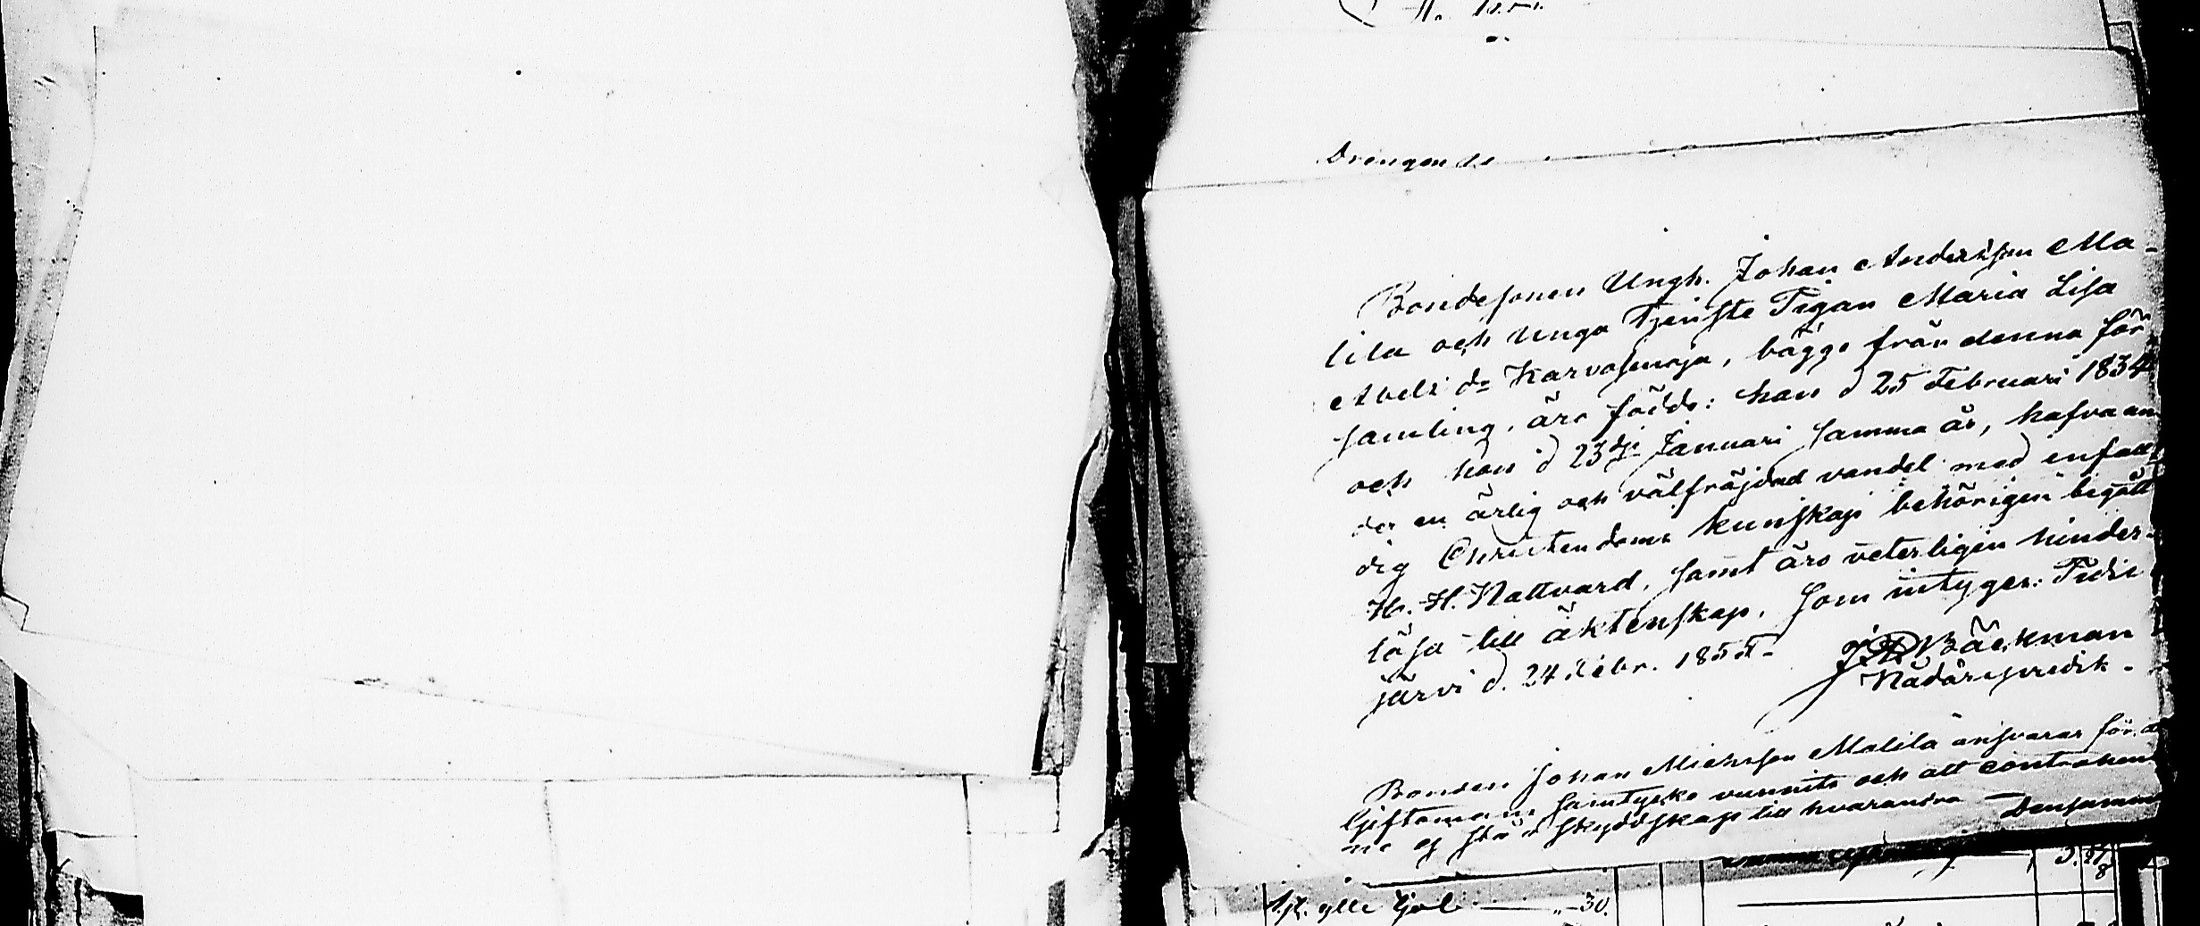 Drengen de
Bondesonen Ungk. Johan Andersson Ma-
lila och Unga Tjenste Pigan Maria Lisa
Abels dr Karvasmaja, bägge från denna för-
samling, äro födde: han d 25 Februari 1834
och hon d 23dje Januari samma år, hafva un-
der en ärlig och välfräjdad vandel med enfal-
dig Christendoms kunskap behörigen begått
H. H. Nattvard, samt äro veterligen hinder-
lösa till äktenskap, som intygar. Pidis
järvi d. 24 Febr. 1855.
Bäckman
Nådårspredik.
Bonden Johan Michsson Malila ansvarar för, at
Giftomans samtycke vunnits och att contrahen
ne ej stå i skyldskap till hvarandra — Densamme
1 st. ylle kjol — " 30.